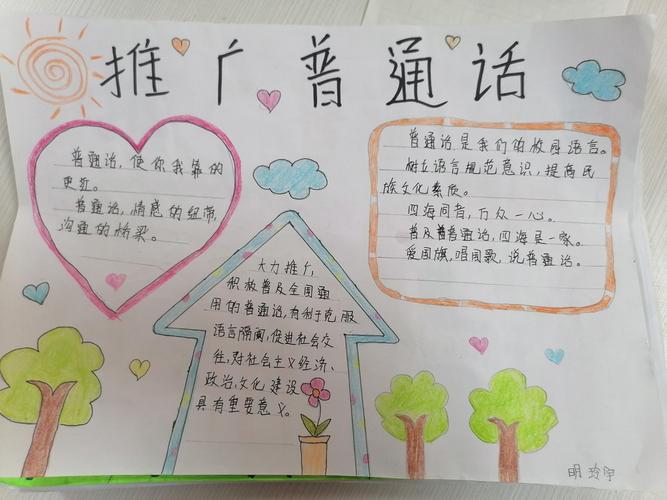 推广普通话
普通话,使你我靠的
更近。
普通话,情感的纽带,
沟通的桥梁。
大力推广,
积极普及全国通
用的普通话,有利于克服
语言隔阂,促进社会交
往,对社会主义经济、
政治,文化建设
具有重要意义。
普通话是我们的校园语言。
树立语言规范意识,提高民
族文化素质。
四海同音,万众一心。
普及普通话,四海是一家。
爱国旗,唱国歌,说普通话。
明玲宇